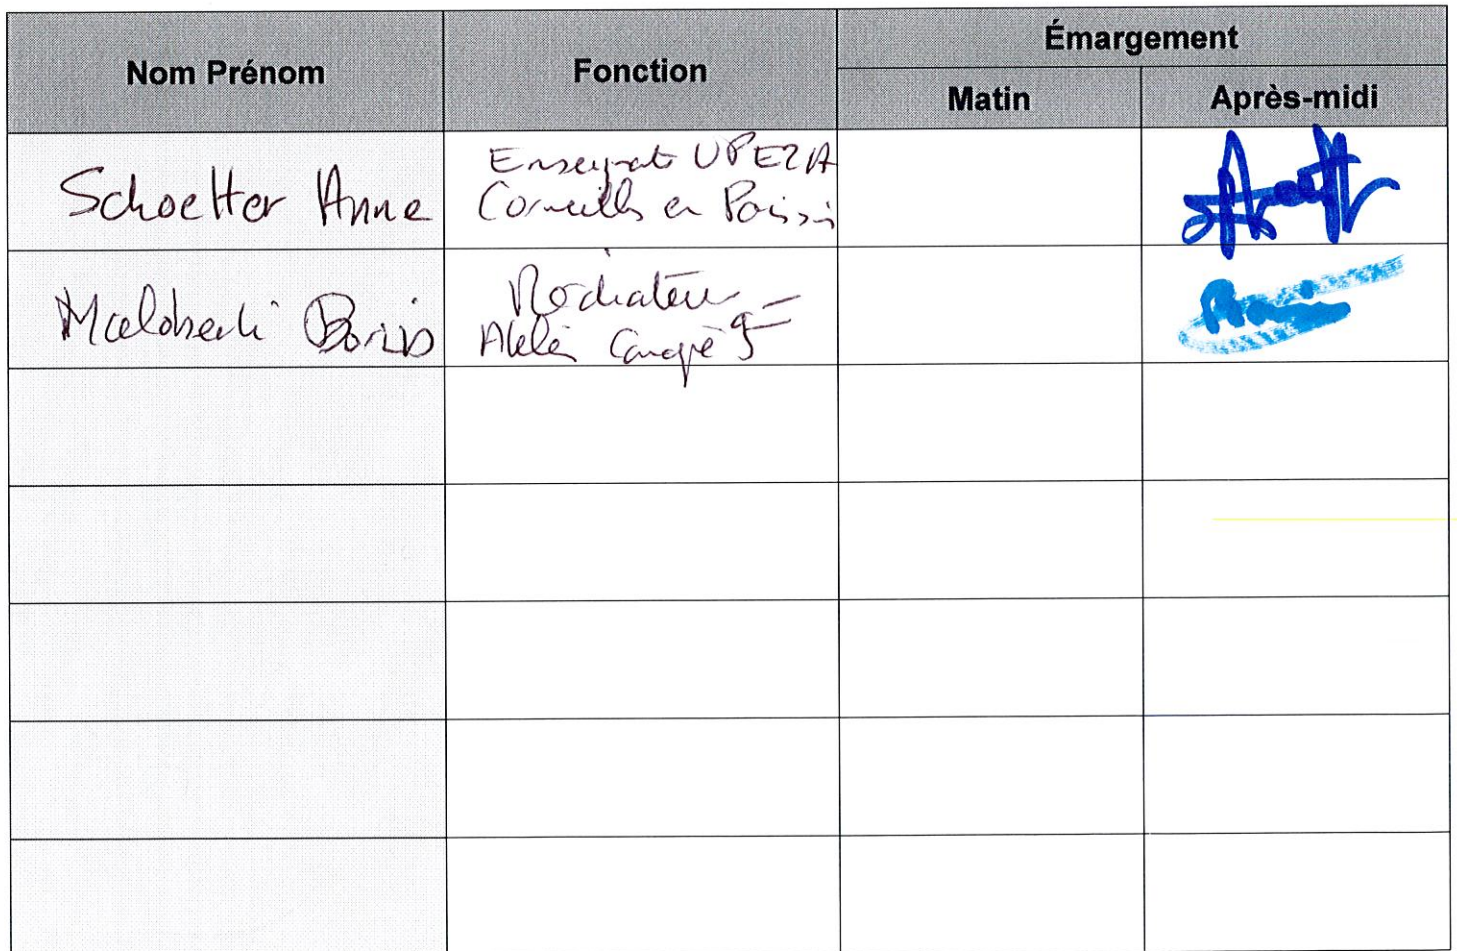 Nom Prénom
Fonction
Émargement
Matin
Après-midi
Schoetter Anne
Enseignante UPE2A
Cormeilles en Parisis
Boris
Médiateur
Atelier Canopé 95